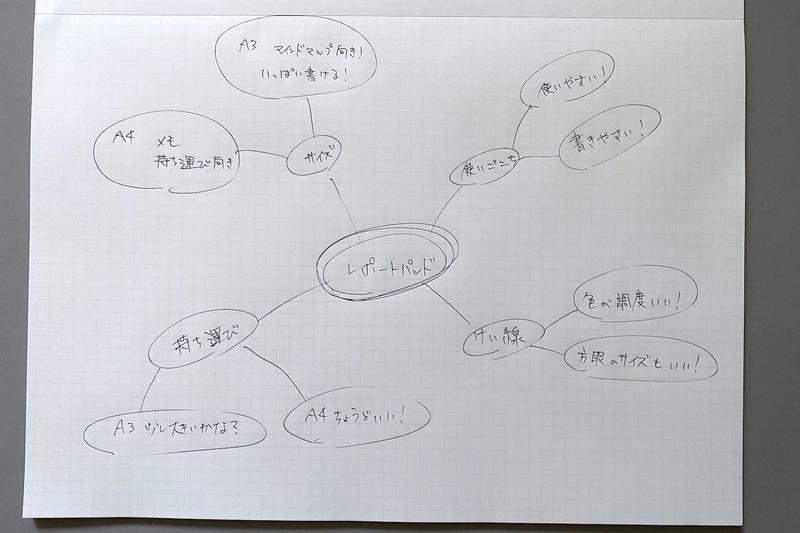 A3 マインドマップ向き!
いっぱい書ける!
A4 メモ
持ち運び向き
サイズ
使いやすい!
書きやすい!
使いごこち
レポートパッド
持ち運び
A3 少し大きいかな?
A4 ちょうどいい!
けい線
色が調度いい!
方眼のサイズもいい!